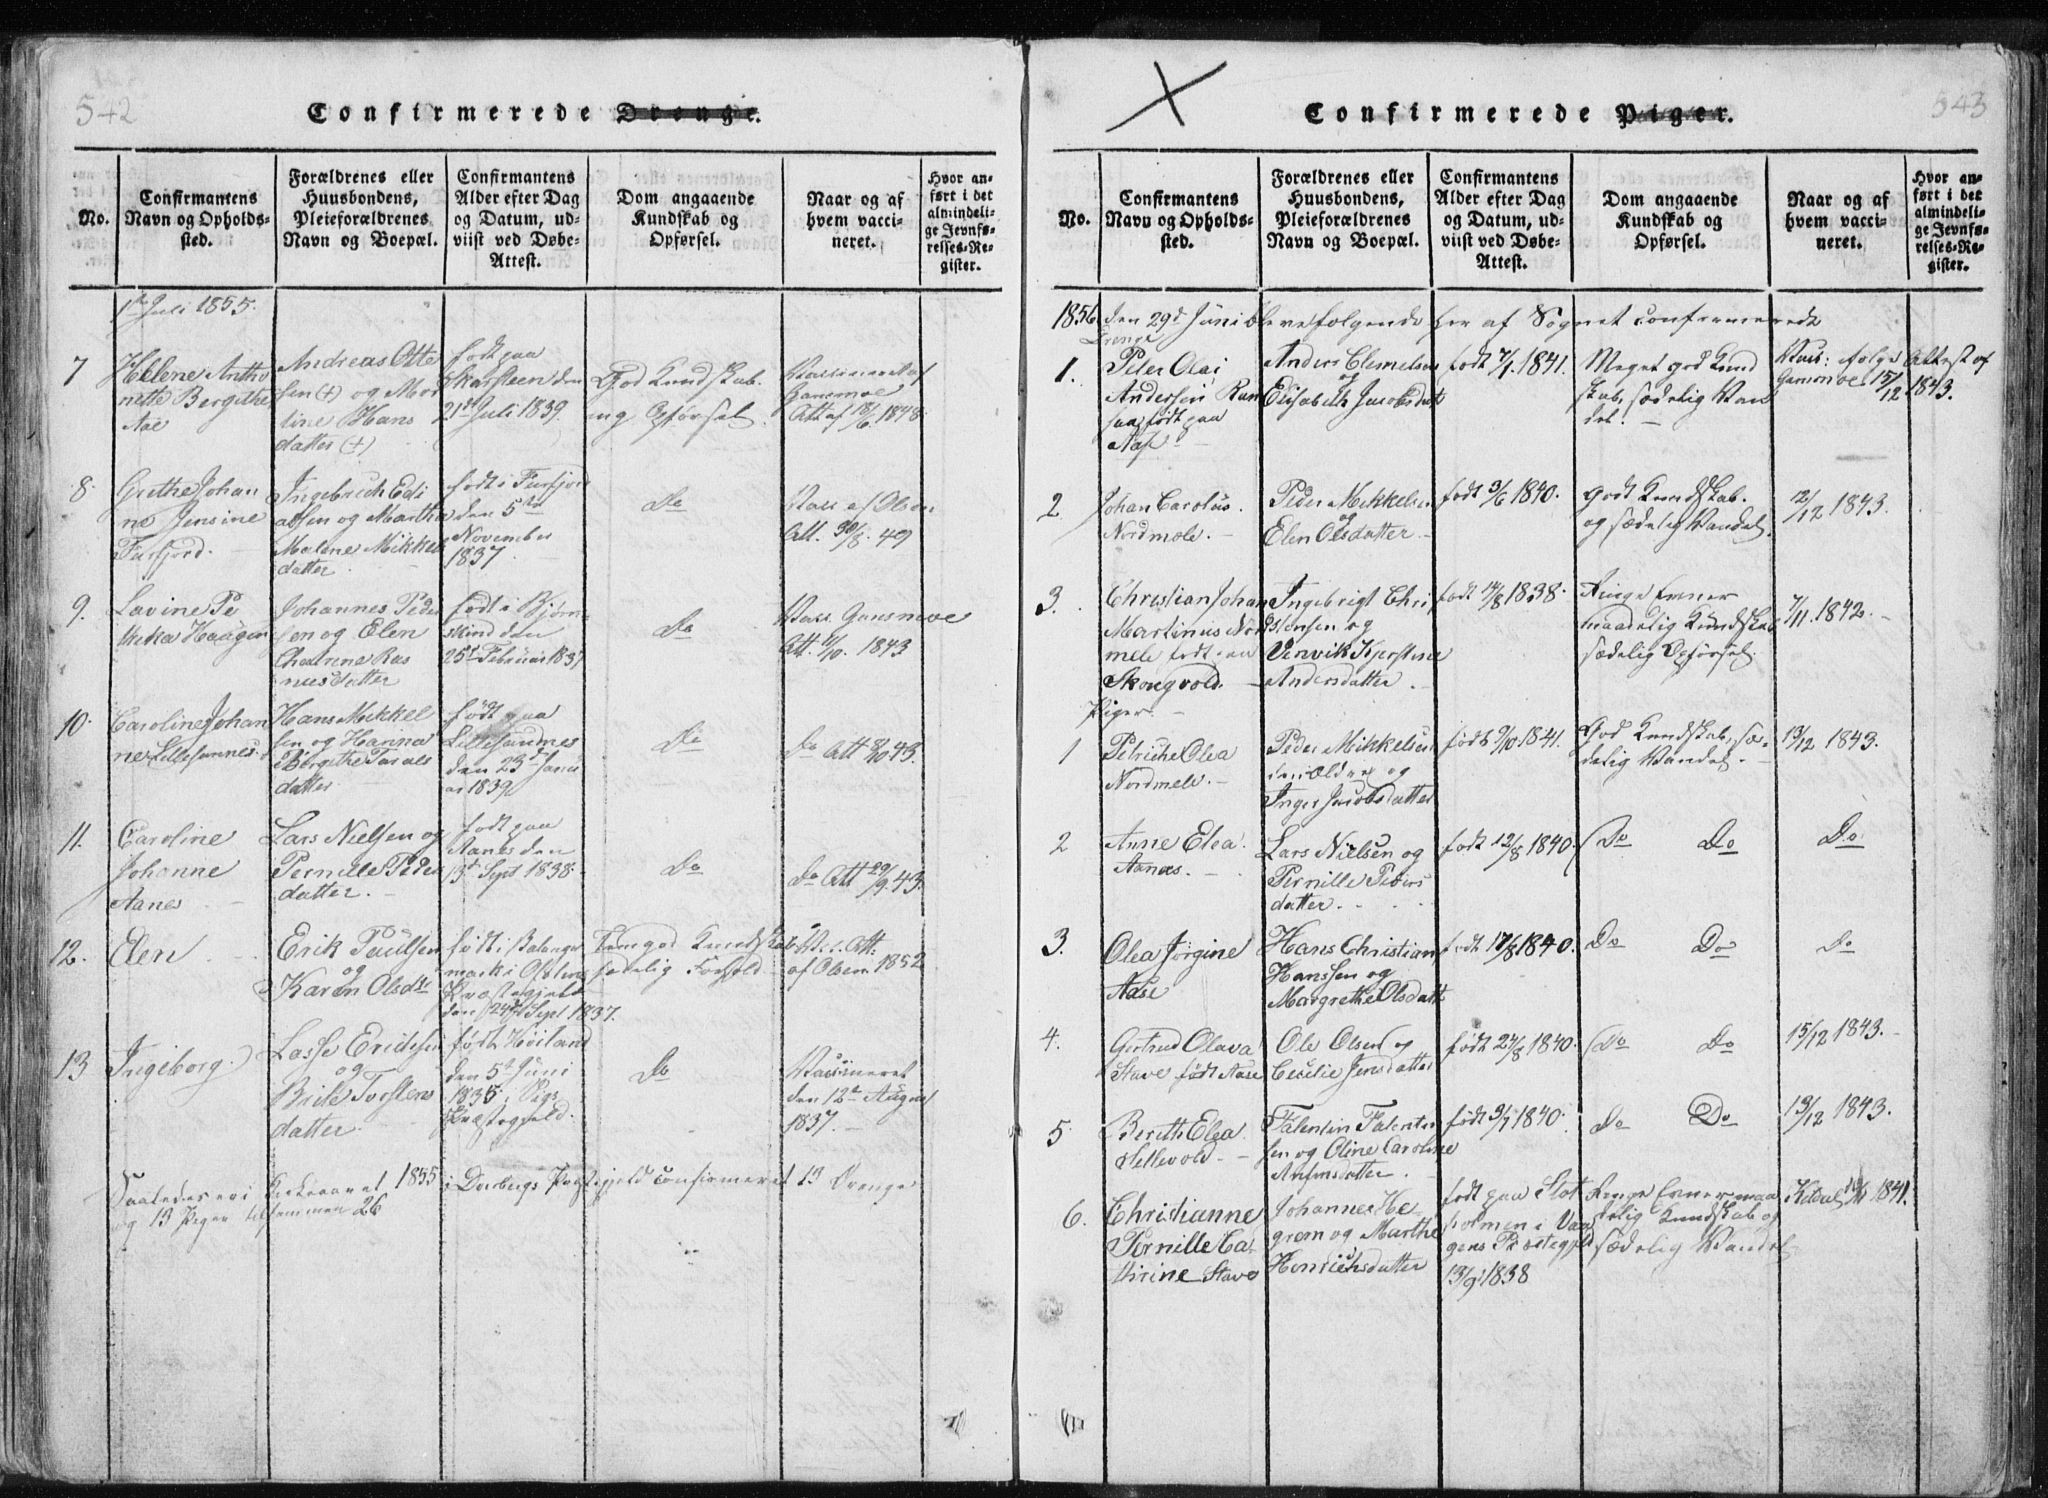 542
Confirmerede Drenge.
No.
Confirmantens
Navn og Opholds-
sted.
Forældrenes eller
Huusbondens,
Pleieforældrenes
Navn og Boepæl.
Confirmantens
Alder efter Dag
og Datum, ud-
viist ved Døbe-
Attest.
Dom angaaende
Kundskab og
Opførsel.
Naar og af
hvem vacci-
neret.
Hvor an-
ført i det
almindeli-
ge Jevnfø-
relses-Re-
gister.
1ste Juli 1855.
7
Helene Antho
nette Bergithe
Aae
Andreas Otte
sen (+) og Mor
tine Hans
datter (+)
født paa
Skarsteen den
21de Juli 1839
God Kundskab.
og Opførsel.
Gansmoe
Att af 18/6 1848.
8.
Grethe Johan
ne Jensine
Fursfjord.
Ingebrich Edi
assen og Martha
Malene Mikkels
datter
født i Fursfjord
den 5te
November
1837.
Do
Vacc af Olsen
Att. 30/8. 49
9.
Lavine Pe
thrka Haugen
Johannes Peder
sen og Elen
Chatrina Ras
musdatter
født i Bjørn
skind den
25de Februar 1837
Do
Vacc. Gansmoe
Att. 4/10. 1843
10.
Caroline Johan
ne Lillesannes.
Hans Mikkel
sen og Hanna
Birgithe Torals
datter.
født paa
Lillesandnes
den 23de Janu
ar 1839
Do
Do Att 8/10 43.
11.
Caroline
Johanne
Aanes
Lars Nielsen og
Pernille Peders
datter.
født paa
Aanes den
13de Sept 1838.
Do
Do Att 29/9 43.
12.
Elen
Erik Paulsen
og
Karen Olsdtr
født i Balanger
mark i Ofotens
Præstegjeld
den 24de Sept 1837.
Temgod Kundskab
sædelig Forhold
Att:
af Olsen 1852
13
Ingeborg.
Lasse Ericksen
og
Brite Torstens
datter
født Høiland
den 5te Juni
1835 i Vigs
Præstegjeld.
Do
Vaccineret
den 12te August
1837.
Saaledes er i Kirkeaaret 1855 i Dverbergs Præstegjeld confirmeret 13 Drenge
og 13 Piger tilsammen 26
543
Confirmerede Piger.
No.
Confirmantens
Navn og Opholds-
sted.
Forældrenes eller
Huusbondens,
Pleieforældrenes
Navn og Boepæl.
Confirmantens
Alder efter Dag
og Datum, ud-
viist ved Døbe-
Attest.
Dom angaaende
Kundskab og
Opførsel.
Naar og af
hvem vacci-
neret.
Hvor an-
ført i det
almindeli-
ge Jevnfø-
relses-Re-
gister.
1856 den 29de Juni bleve følgende her af Sognet confirmerede
Drenge
1.
Peter Olai
Andersen Ram
saa født paa
Aase
Anders Clemetsen
og
Elisabeth Jacobsdatt
født 7/1. 1841.
Meget god Kund
skab, sædelig Van
del.
Vacc: følge Attest af
Gansmoe 15/12 1843.
2
Johan Carolus.
Nordmele.
Peder Mikkelsen
og
Elen Olsdatter
født 3/6 1840.
godt Kundskab.
og sædelig Vandel.
12/12 1843.
3.
Christian Johan
Martinus Nord
mele født paa
Skongvold.
Ingebrigt Chri
stensen og
Venvik Kjerstine
Andersdatter.
født 14/8 1838.
Ringe Emner
maadelig Kundskab
sædelig Opførsel.
7/11. 1842.
Piger.
1
Petriche Olea
Nordmele.
Peder Mikkelsen
den Ældre og
Inger Jacobsdatter
født 9/10. 1841.
God Kundskab, sæ-
delig Vandel.
13/12 1843.
2
Anne Elea.
Aanæs.
Lars Nielsen og
Pernille Peders
datter.
født 12/8 1840.
Do Do
Do
3.
Olea Jørgine
Aase
Hans Christian
Hanssen og
Margrethe Olsdatt
født 17/8 1840.
Do Do
Do
4.
Gertrud Olava
Stave født Aase
Ole Olsen og
Cecelie Jensdatter
født 24/8 1840.
Do Do
15/12 1843.
5.
Bereth Elea
Sellevold
Falentin Falentin
sen og Oline Caroline
Anfinsdatter
født 3/7 1840.
Do Do
13/12 1843.
6.
Christianne
Pernille Ca-
thrine Stave
Johannes He-
grem og Marthe
Henrichsdatter
født paa Slot
holmen i Vaa
gens Præstegjeld
13/9 1838
Ringe Evner maa
delig Kundskab og
sædelig Vandel
1841.